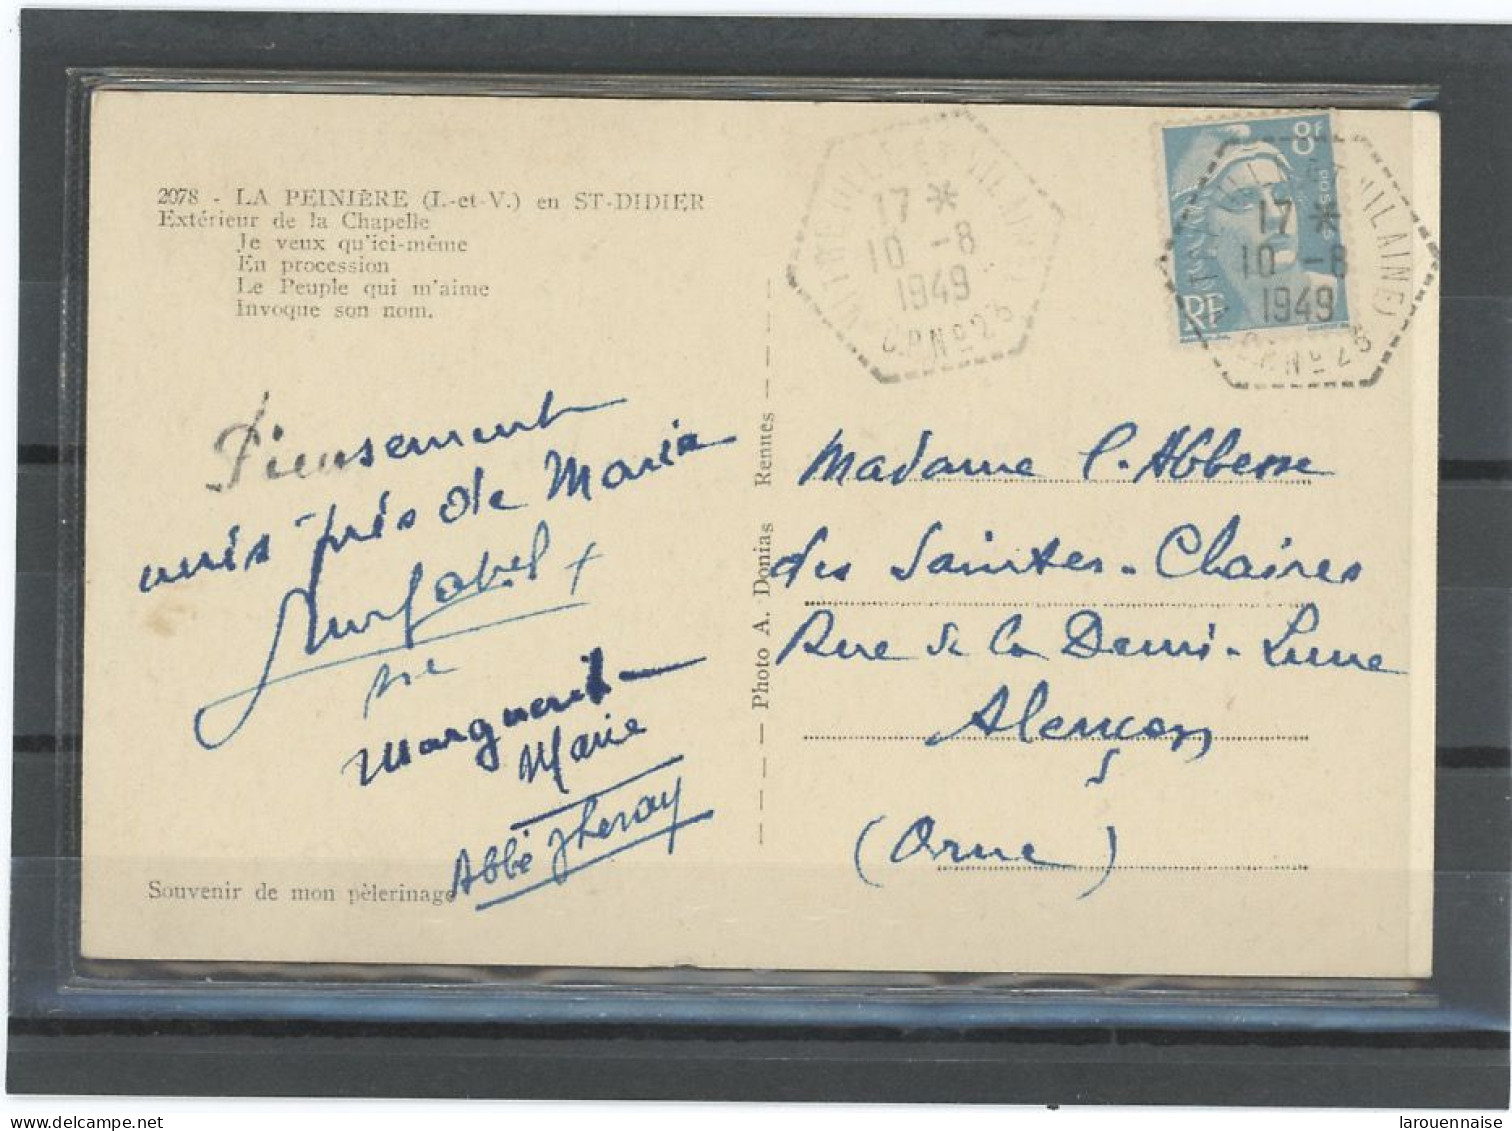 2078 - LA PEINIÈRE (I.-et-V.) en ST-DIDIER
Extérieur de la Chapelle
Je veux qu'ici-même
En procession
Le Peuple qui m'aime
Invoque son nom.
17 *
10 -8
1949
CP No 28
8f
RF
17 *
10 -8
1949
CP No 28
Pieusement
unis près de Maria
Marguerite
Marie
Abbé
Souvenir de mon pèlerinage
Photo A. Donias Rennes
Madame l'Abbesse
des Saintes-Claires
Rue de la Demi-Lune
Alençon
(Orne)
www.delcampe.net
larouennaise